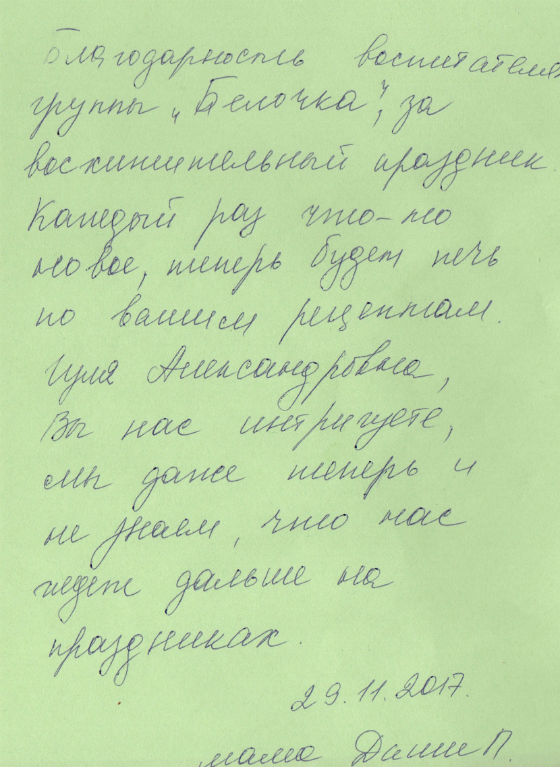 Благодарность воспитателям
группы „Белочка", за
восхитительный праздник.
Каждый раз что-то
новое, теперь будем печь
по вашим рецептам.
Гуля Александровна,
Вы нас интригуете,
мы даже теперь и
не знаем, что нас
ждет дальше на
праздниках.
29.11.2017.
мама Даши П.